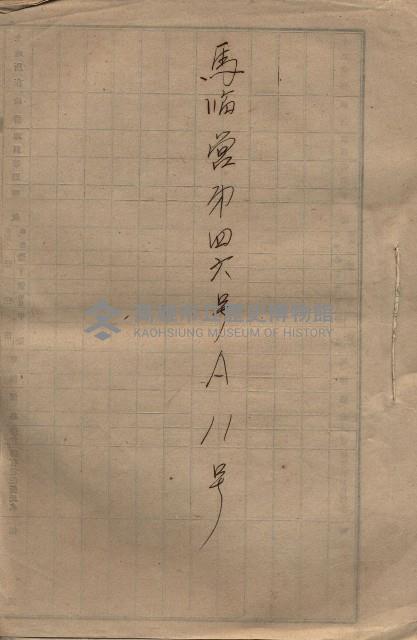 馬臨営第四六号A11号
高雄市立歷史博物館
KAOHSIUNG MUSEUM OF HISTORY